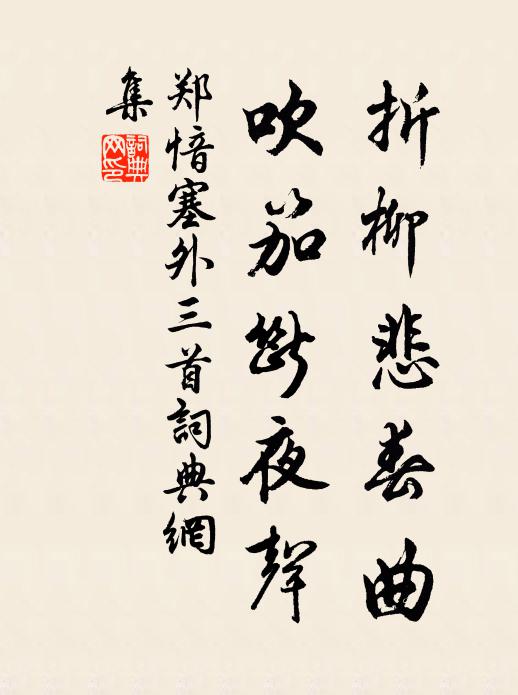 折柳悲春曲
吹笳断夜聲
郑愔塞外三首詞典網
集
詞典網印